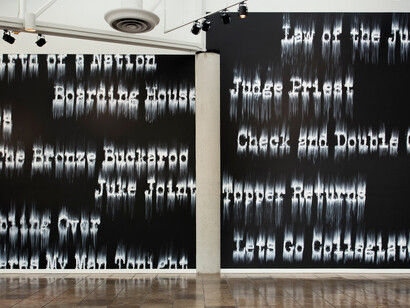 rth of a Nation
Boarding House
s
he Bronze Buckaroo
Juke Joint
My Man
Law of the Ju
Judge Priest
Check and Double
Topper Returns
Lets Go Collegiat